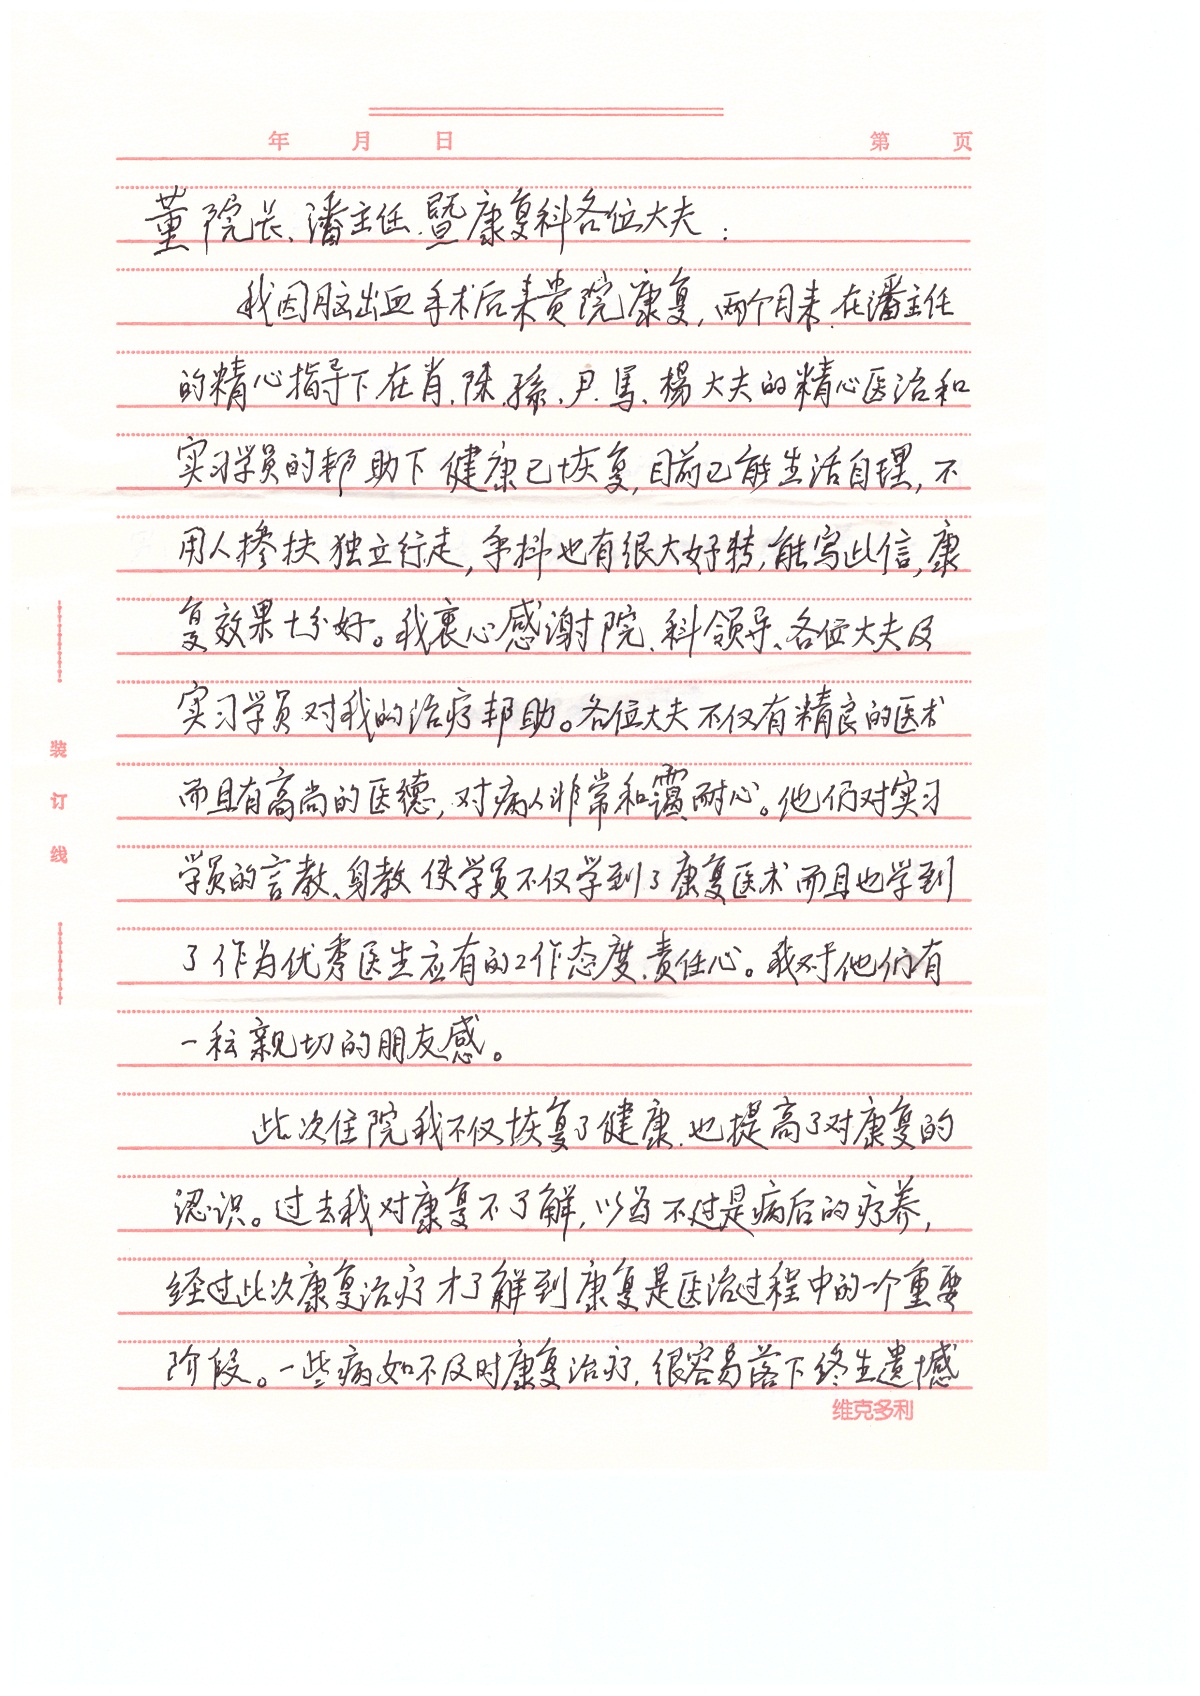 年 月 日 第 页
董院长、潘主任、暨康复科各位大夫:
我因脑出血手术后来贵院康复,两个月来、在潘主任
的精心指导下在肖、陈、孫、尹、馬、楊大夫的精心医治和
实习学员的帮助下健康已恢复,目前已能生活自理,不
用人掺扶独立行走,手抖也有很大好转,能写此信,康
复效果十分好。我衷心感谢院、科领导、各位大夫及
实习学员对我的治疗帮助。各位大夫不仅有精良的医术
而且有高尚的医德,对病人非常和霭、耐心。他们对实习
学员的言教、身教使学员不仅学到了康复医术而且也学到
了作为优秀医生应有的工作态度、责任心。我对他们有
一种亲切的朋友感。
此次住院我不仅恢复了健康、也提高了对康复的
認识。过去我对康复不了解,以为不过是病后的疗养,
经过此次康复治疗才了解到康复是医治过程中的一个重要
阶段。一些病如不及时康复治疗,很容易落下终生遗憾
装
订
线
维克多利